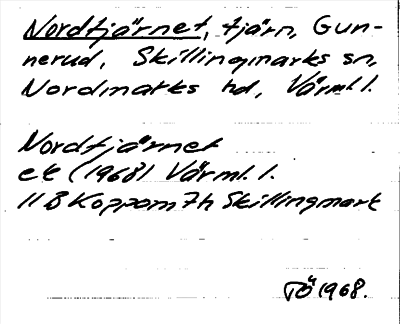 Nordtjärnet, tjärn, Gun-
nerud, Skillingmarks sn,
Nordmarks hd, Värml. l.
Nordtjärnet
ek (1968) Värml. l.
11 B Koppom 7h Skillingmark
TÖ 1968.